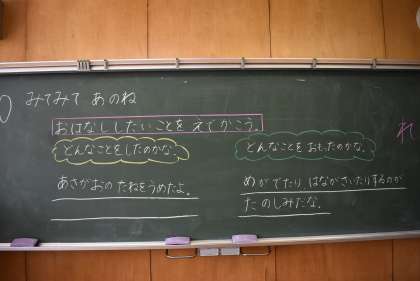 みてみて あのね
おはなししたいことを えでかこう。
どんなことをしたのかな。
どんなことを おもったのかな。
あさがおの たねをうめたよ。
めがでたり はながさいたりするのが
たのしみだな。
れ